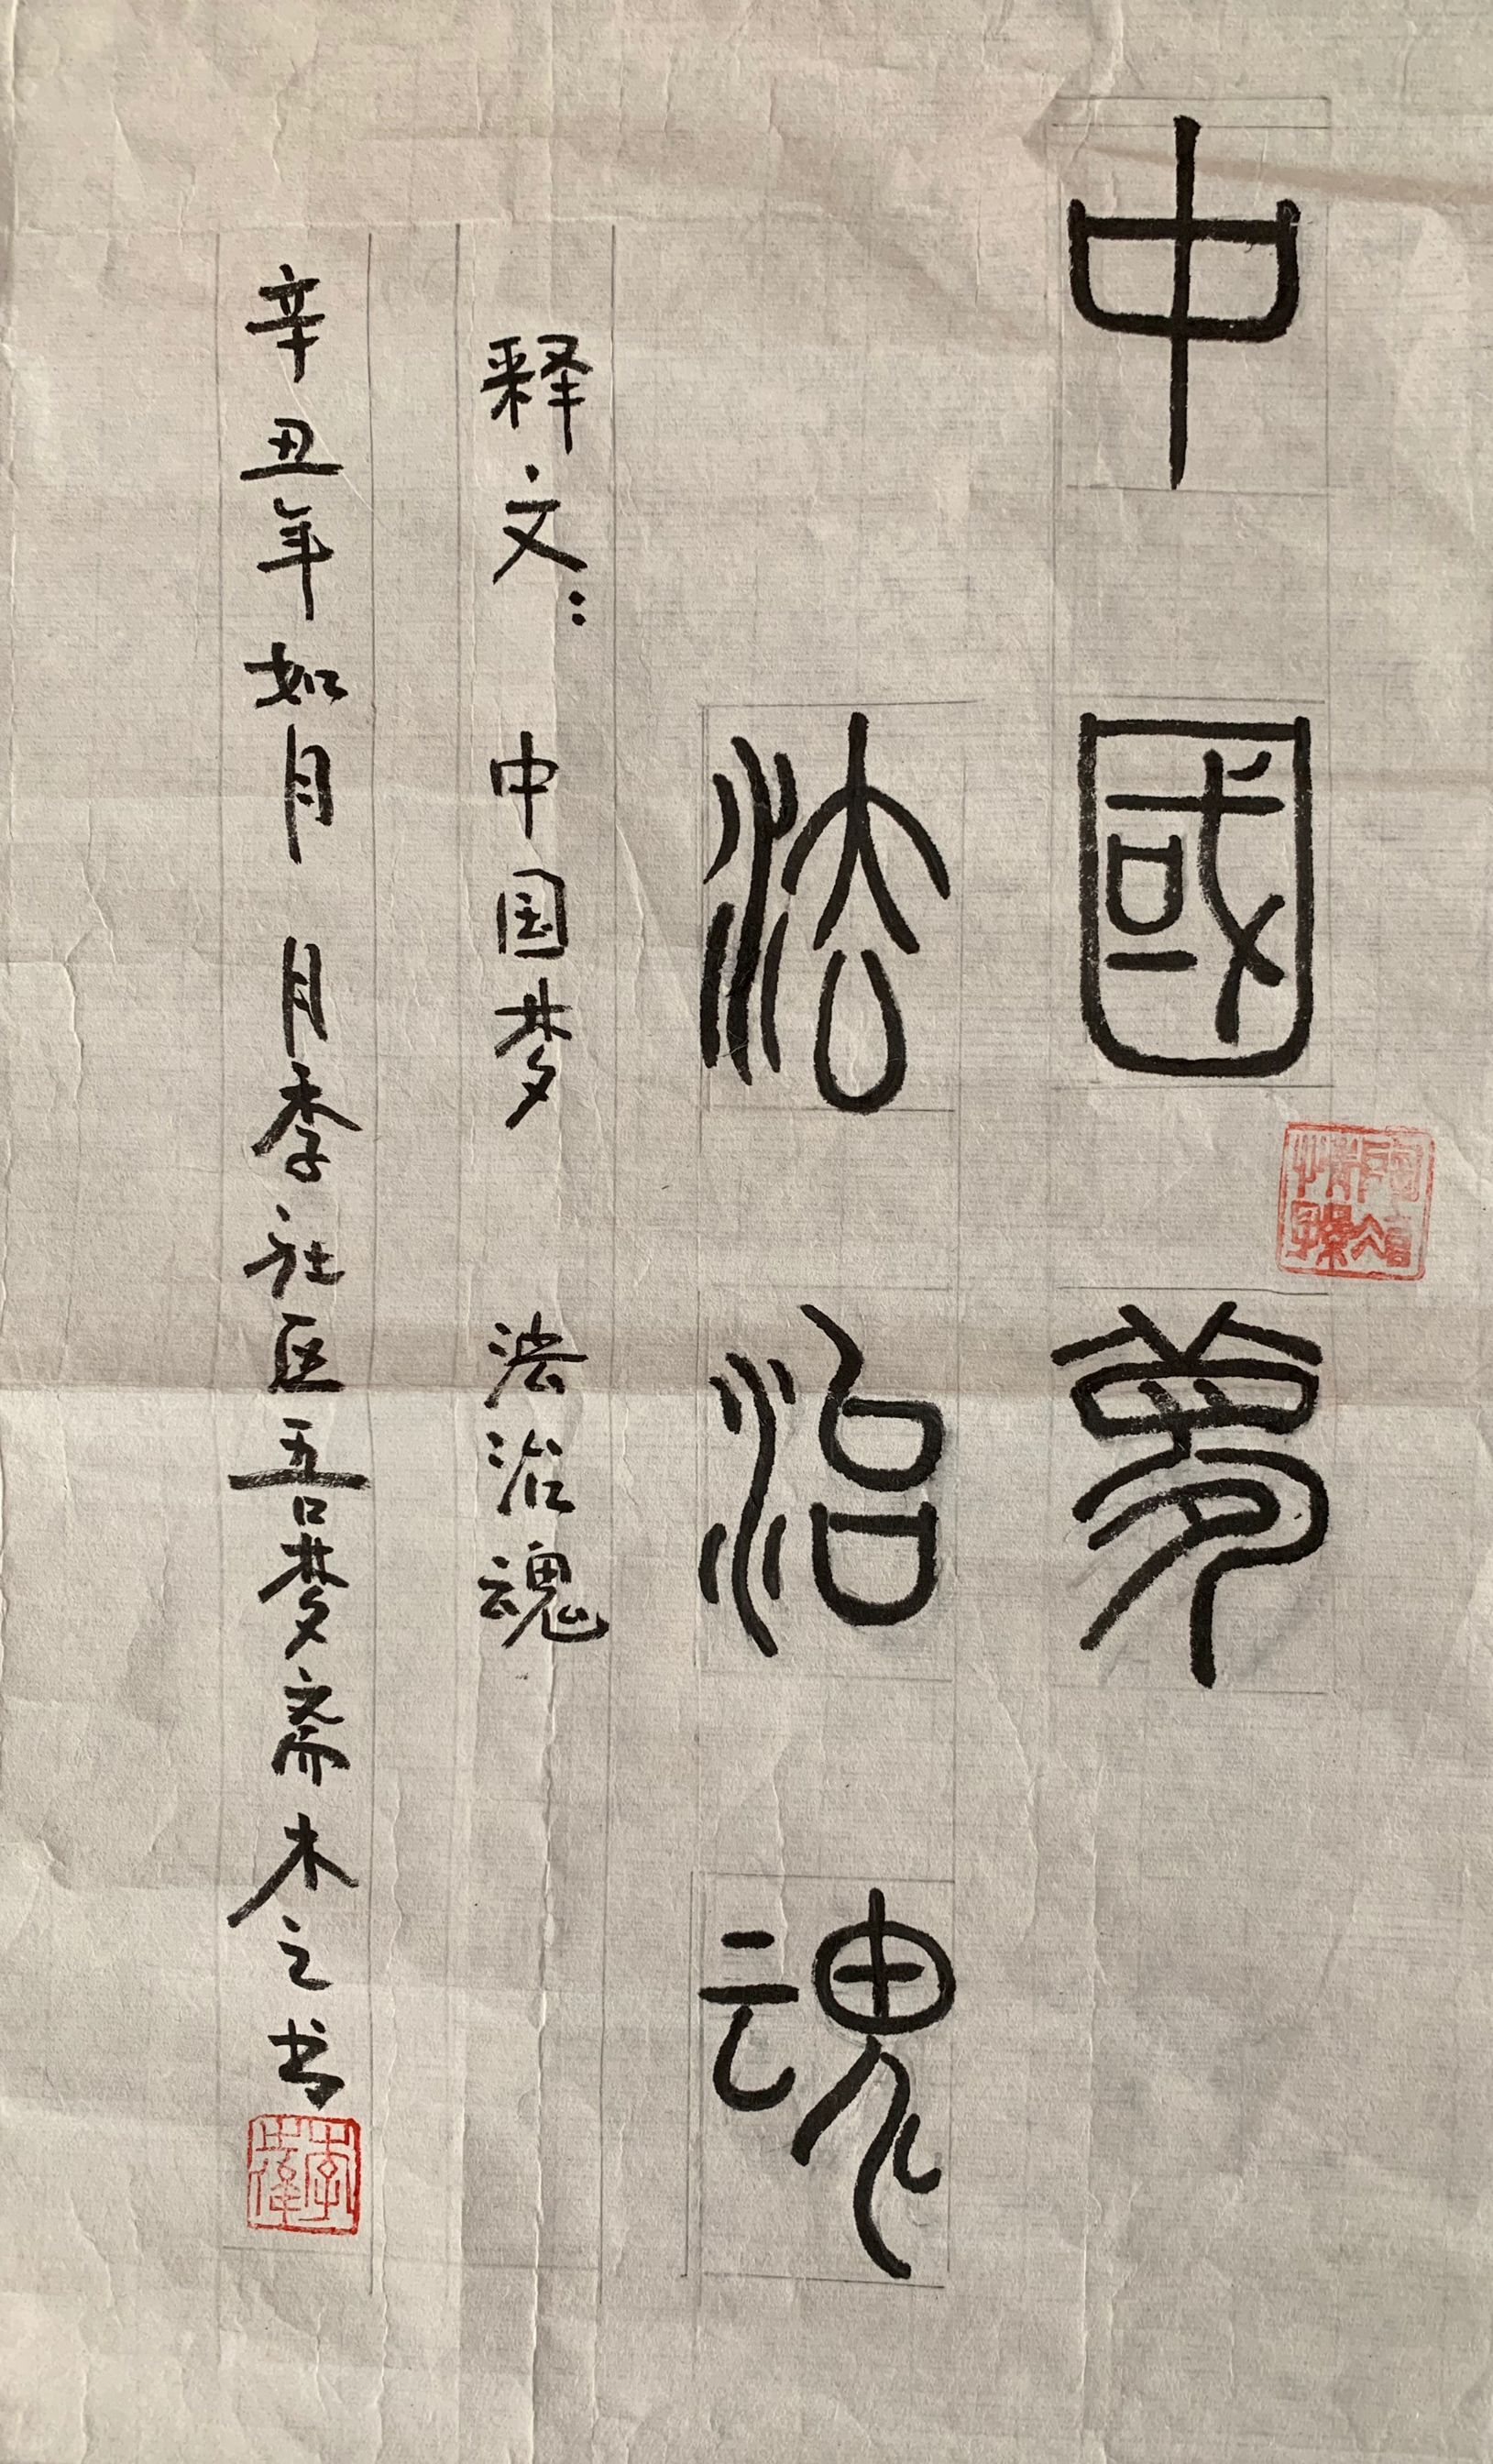 中國夢
法治魂
释文：中国梦 法治魂
辛丑年如月 月季社区吾梦斋木之书